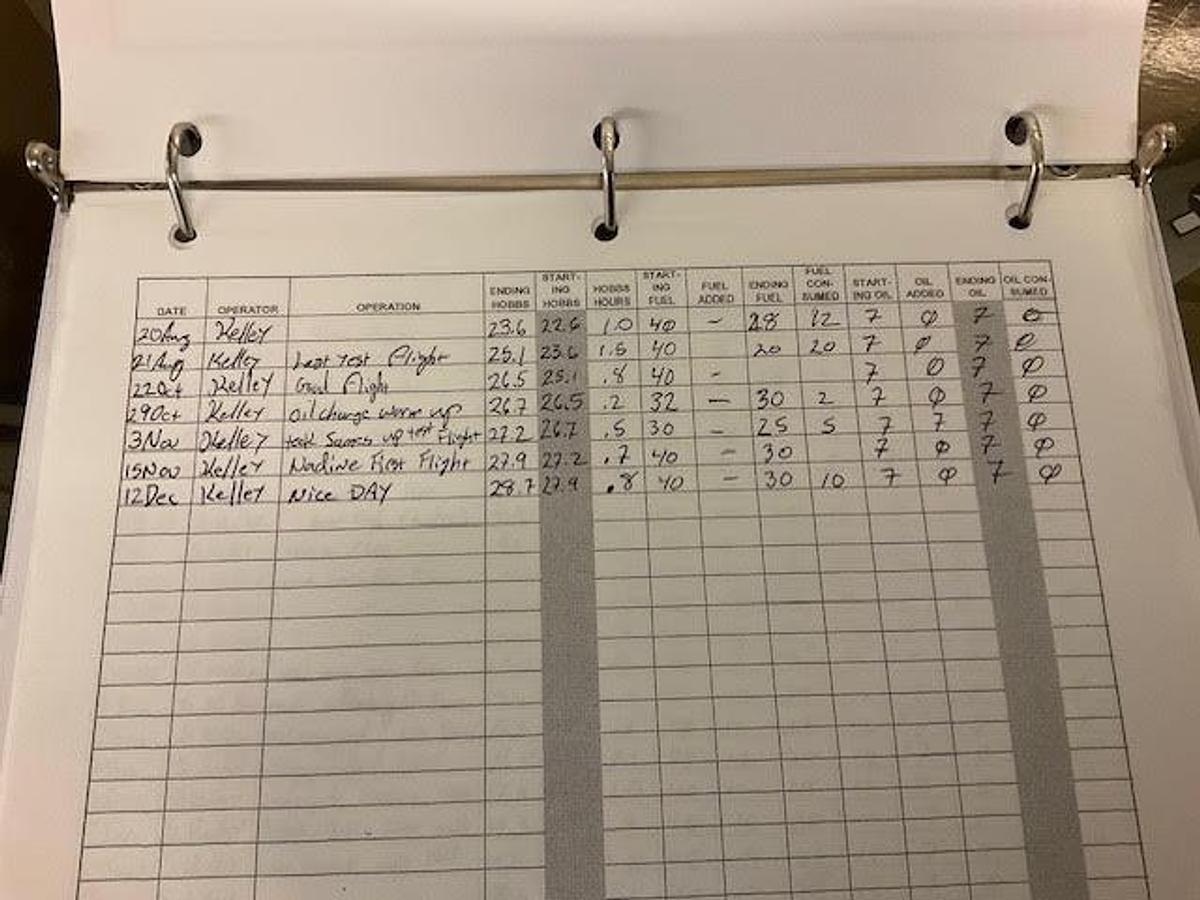 DATE OPERATOR OPERATION ENDING HOBBS START-ING HOBBS HOBBS HOURS START-ING FUEL FUEL ADDED ENDING FUEL FUEL CON-SUMED START-ING OIL OIL ADDED ENDING OIL OIL CON-SUMED
20Aug Kelley 23.6 22.6 1.0 40 – 28 12 7 0 7 0
21Aug Kelley Last test Flight 25.1 23.6 1.5 40 20 20 7 0 7 0
22Oct Kelley Good Flight 26.5 25.1 .8 40 – 7 0 7 0
29Oct Kelley oil change warm up 26.7 26.5 .2 32 – 30 2 7 0 7 0
3Nov Kelley up test Flight 27.2 26.7 .5 30 – 25 5 7 7 7 0
15Nov Kelley Nadine First Flight 27.9 27.2 .7 40 – 30 7 0 7 0
12Dec Kelley Nice DAY 28.7 27.9 .8 40 – 30 10 7 0 7 0